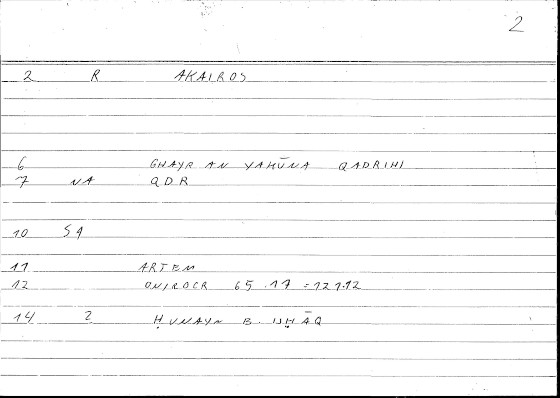 2
2 R AKAIROS
6 GHAYR AN YAKŪNA QADRIHI
7 NA QDR
10 SA
11 ARTEM
12 ONIROCR 65.17 = 121.12
14 2 ḤUNAYN B. ISḤĀQ